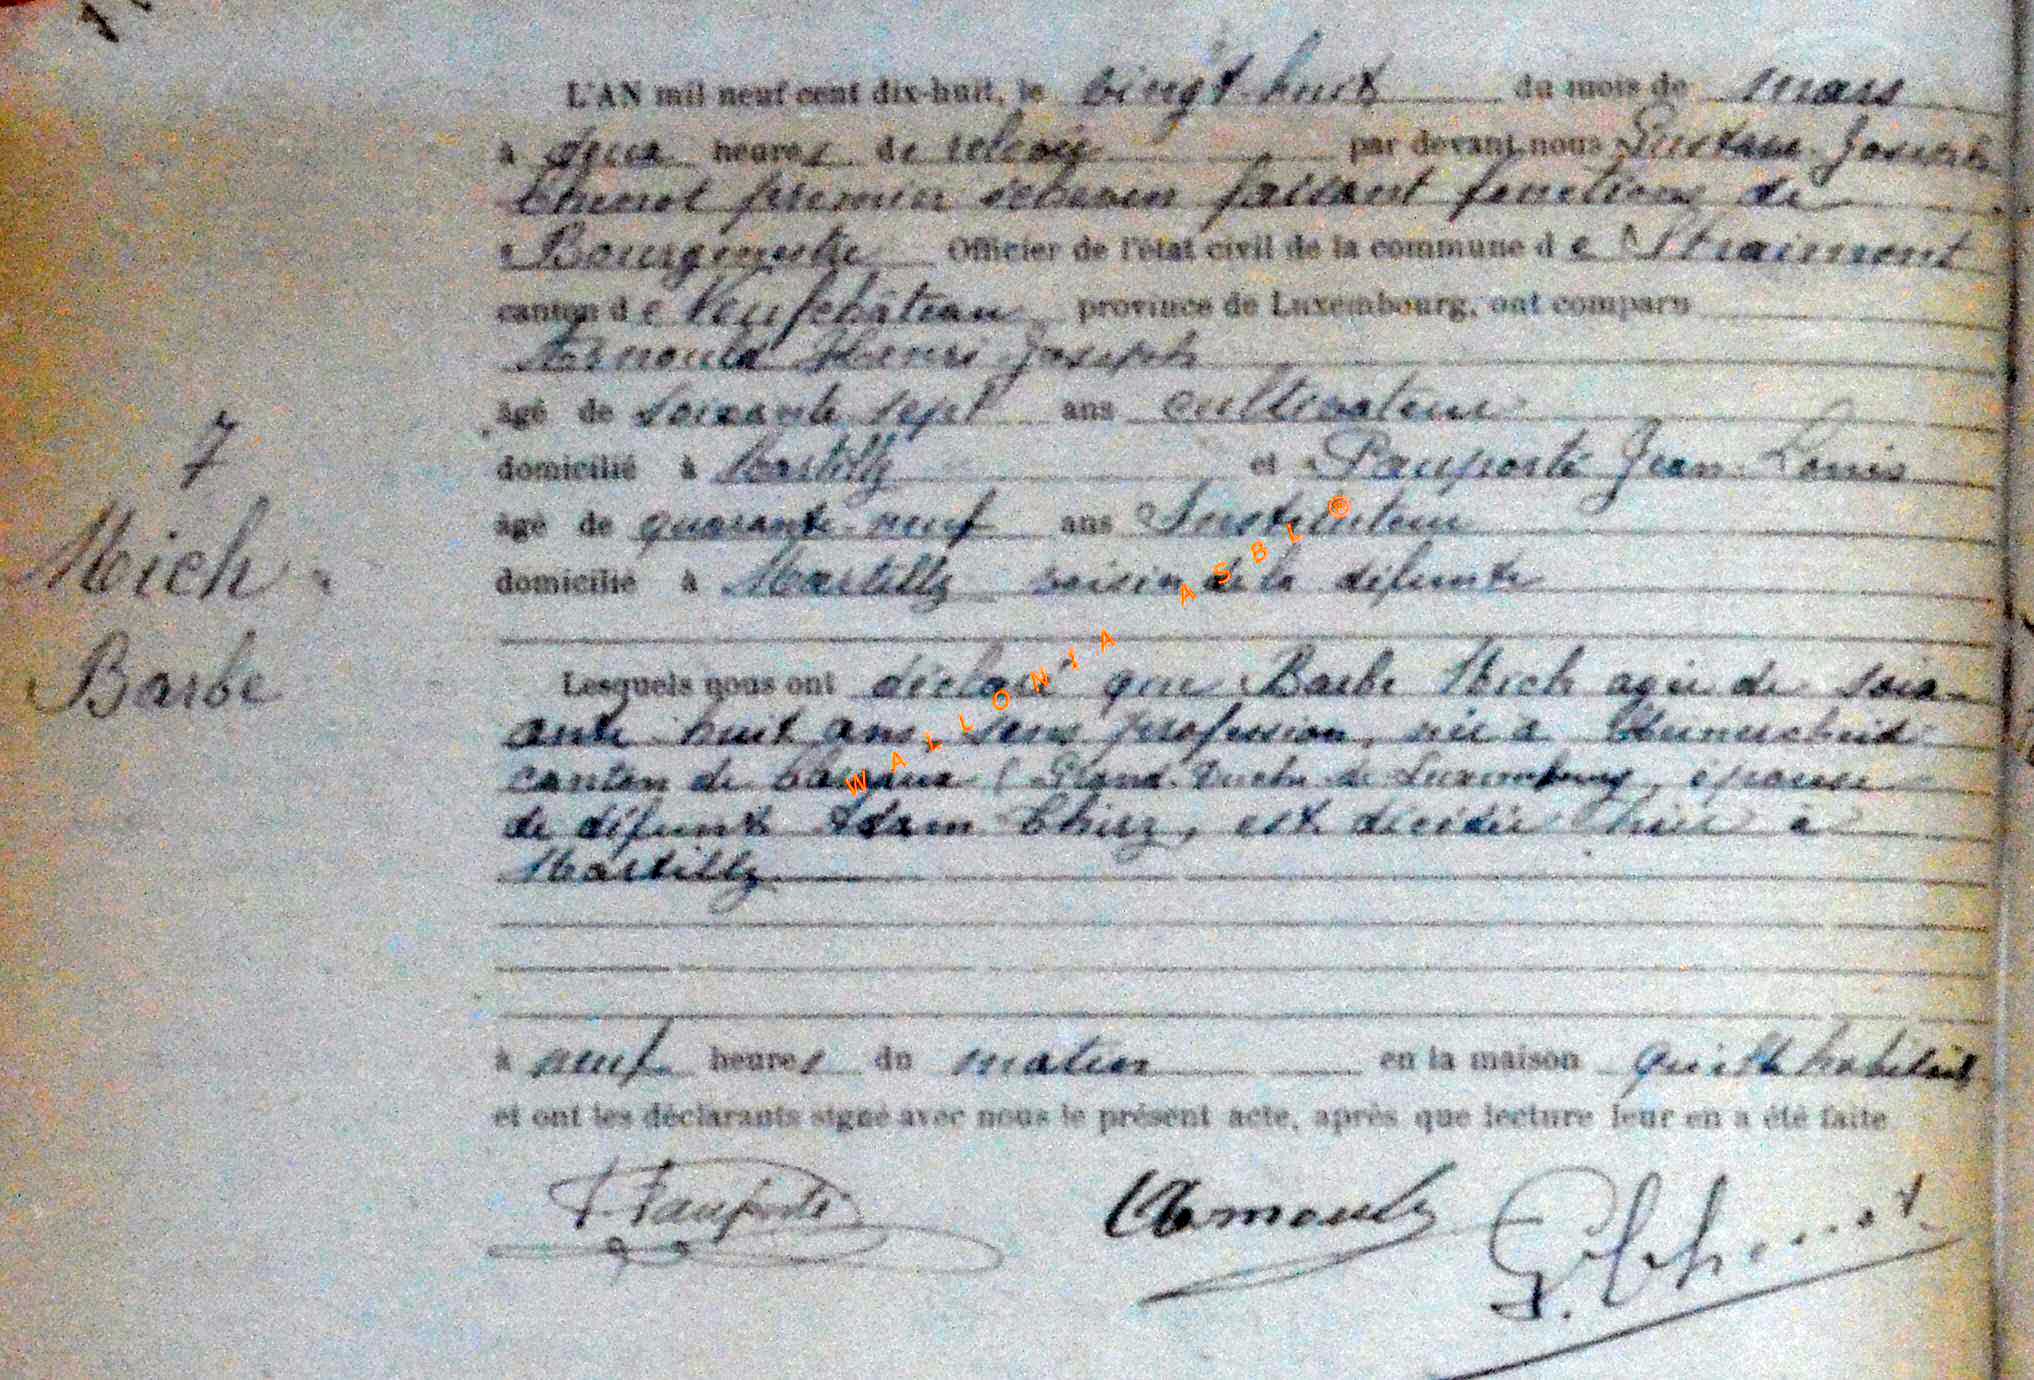 L'AN mil neuf cent dix-huit, le vingt-huit du mois de mars
à deux heures de relevée par devant nous Gustave Joseph
Chenot premier échevin faisant fonctions de
Bourgmestre Officier de l'état civil de la commune de Straimont
canton de Neufchâteau province de Luxembourg, ont comparu
Arnould Henri Joseph
âgé de soixante sept ans cultivateur
domicilié à Martilly et Pauporté Jean-Louis
âgé de quarante-neuf ans Instituteur
domicilié à Martilly voisin de la défunte
7
Mich
Barbe
Lesquels nous ont déclaré que Barbe Mich agée de soix-
ante huit ans, sans profession, née à
canton de Clervaux (Grand-Duché de Luxembourg, épouse
de défunt Adam est décédée hier à
Martilly
à neuf heures du matin en la maison qu'elle habitait
et ont les déclarants signé avec nous le présent acte, après que lecture leur en a été faite
Pauporté Arnould G. Chenot
WALLONYA ASBL ®